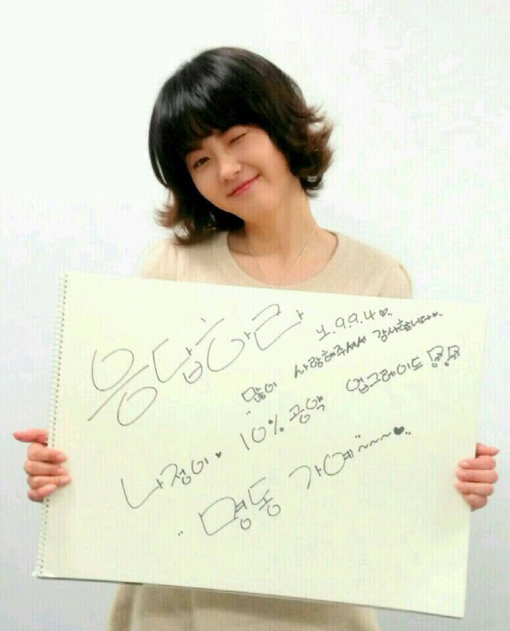 응답하라 1.9.9.4 ♡.
많이 사랑해주셔서 감사합니다~
나정이♥ 10% 공약 업그레이드
명동 가예~~~♥..